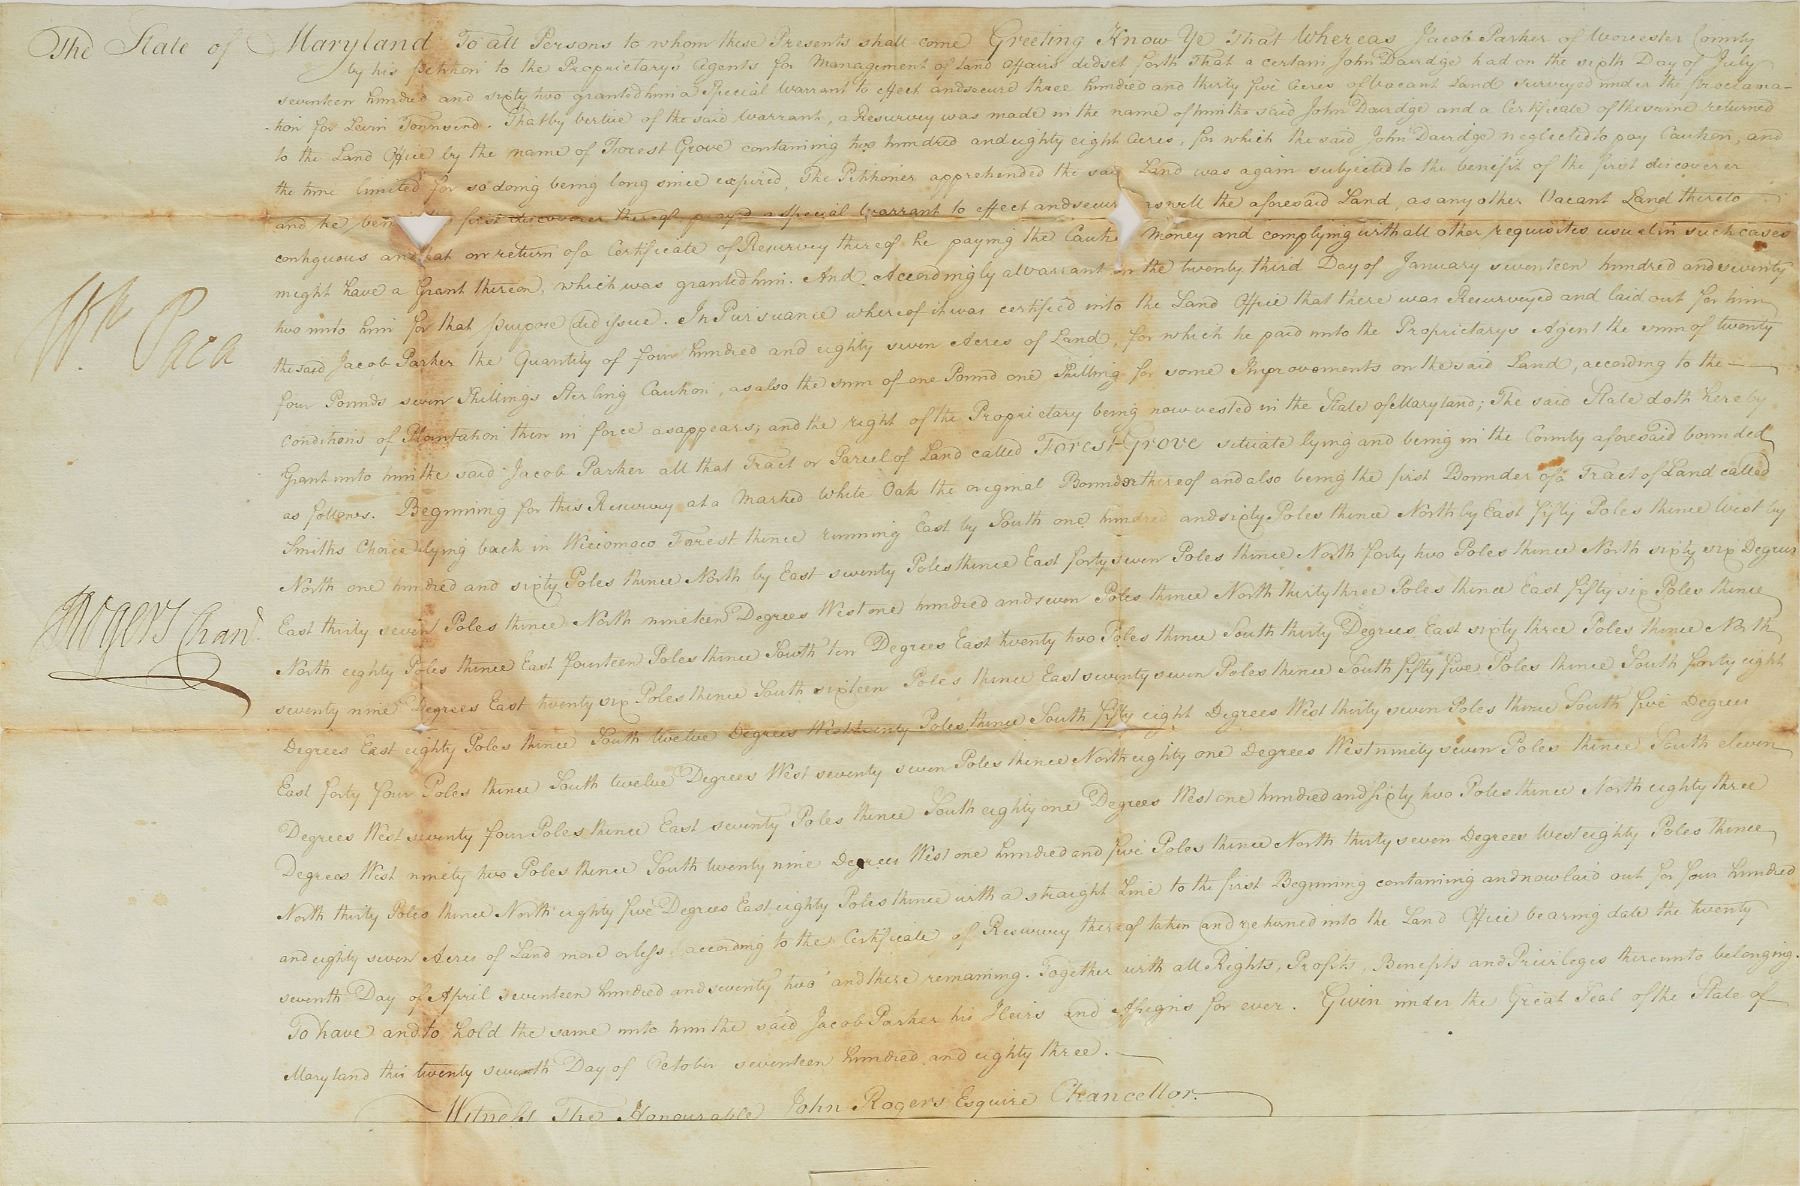 The State of Maryland To all Persons to whom these Presents shall come Greeting Know Ye That Whereas Jacob Parker of Worcester County
by his Petition to the Proprietarys Agents for Management of Land Affairs did set forth That a certain John Davidge had on the sixth Day of July
seventeen hundred and sixty two granted him a Special Warrant to effect and secure three hundred and thirty five Acres of Vacant Land surveyed under the Proclama-
tion for Levin Townsend. That by vertue of the said Warrant, a Resurvey was made in the name of him the said John Davidge and a Certificate of the same returned
to the Land Office by the name of Forest Grove containing two hundred and eighty eight Acres, for which the said John Davidge neglected to pay Caution, and
the time limited for so doing being long since expired, The Petitioner apprehended the said Land was again subjected to the benefit of the first discoverer
and he first discoverer thereof prayed a Special Warrant to effect and secure as well the aforesaid Land, as any other Vacant Land thereto
contiguous and that on return of a Certificate of Resurvey thereof he paying the Caution Money and complying with all other requisites usual in such cases
might have a Grant thereon, which was granted him. And Accordingly a Warrant on the twenty third Day of January seventeen hundred and seventy
two unto him for that purpose did issue. In Pursuance whereof it was certified into the Land Office that there was Resurveyed and laid out for him
the said Jacob Parker the Quantity of four hundred and eighty seven Acres of Land, for which he paid unto the Proprietarys Agent the sum of twenty
Wm. Paca
four Pounds seven Shillings Sterling Caution, as also the sum of one Pound one Shilling for some Improvements on the said Land, according to the
conditions of Plantation then in force as appears; and the right of the Proprietary being now vested in the State of Maryland; The said State doth hereby
Grant unto him the said Jacob Parker all that Tract or Parcel of Land called Forest Grove situate lying and being in the County aforesaid bounded
as follows. Beginning for this Resurvey at a Marked White Oak the original Bounder thereof and also being the first Bounder of a Tract of Land called
Smiths Choice lying back in Wiccomoco Forest thence running East by South one hundred and sixty Poles thence North by East fifty Poles thence West by
North one hundred and sixty Poles thence North by East seventy Poles thence East forty seven Poles thence North forty two Poles thence North sixty six Degrees
East thirty seven Poles thence North nineteen Degrees West one hundred and seven Poles thence North thirty three Poles thence East fifty six Poles thence
JRogers Chan.
North eighty Poles thence East fourteen Poles thence South ten Degrees East twenty two Poles thence South thirty Degrees East sixty three Poles thence North
seventy nine Degrees East twenty six Poles thence South sixteen Poles thence East seventy seven Poles thence South fifty five Poles thence South forty eight
Degrees East eighty Poles thence South twelve Degrees West twenty Poles thence South fifty eight Degrees West thirty seven Poles thence South five Degrees
East forty four Poles thence South twelve Degrees West seventy seven Poles thence North eighty one Degrees West ninety seven Poles thence South eleven
Degrees West seventy four Poles thence East seventy Poles thence South eighty one Degrees West one hundred and sixty two Poles thence North eighty three
Degrees West ninety two Poles thence South twenty nine Degrees West one hundred and five Poles thence North thirty seven Degrees West eighty Poles thence
North thirty Poles thence North eighty five Degrees East eighty Poles thence with a straight Line to the first Beginning containing and now laid out for four hundred
and eighty seven Acres of Land more or less, according to the Certificate of Resurvey thereof taken and returned into the Land Office bearing date the twenty
seventh Day of April seventeen hundred and seventy two and there remaining. Together with all Rights, Profits, Benefits and Privileges thereunto belonging.
To have and to hold the same unto him the said Jacob Parker his Heirs and Assigns for ever. Given under the Great Seal of the State of
Maryland this twenty seventh Day of October seventeen hundred and eighty three.
Witness The Honourable John Rogers Esquire Chancellor.